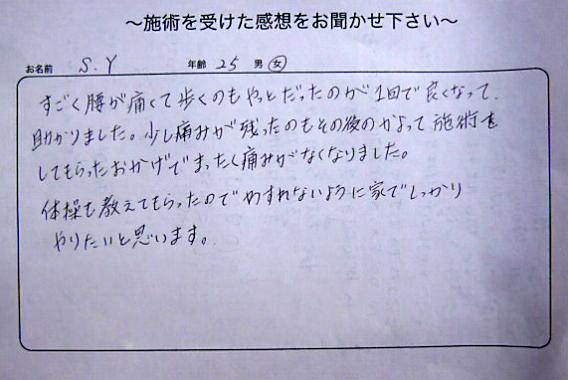 ～施術を受けた感想をお聞かせ下さい～
お名前 S.Y 年齢 25 男 女
すごく腰が痛くて歩くのもやっとだったのが1回で良くなって
助かりました。少し痛みが残ったのもその後のかよって施術を
してもらったおかげでまったく痛みがなくなりました。
体操も教えてもらったのでわすれないように家でしっかり
やりたいと思います。